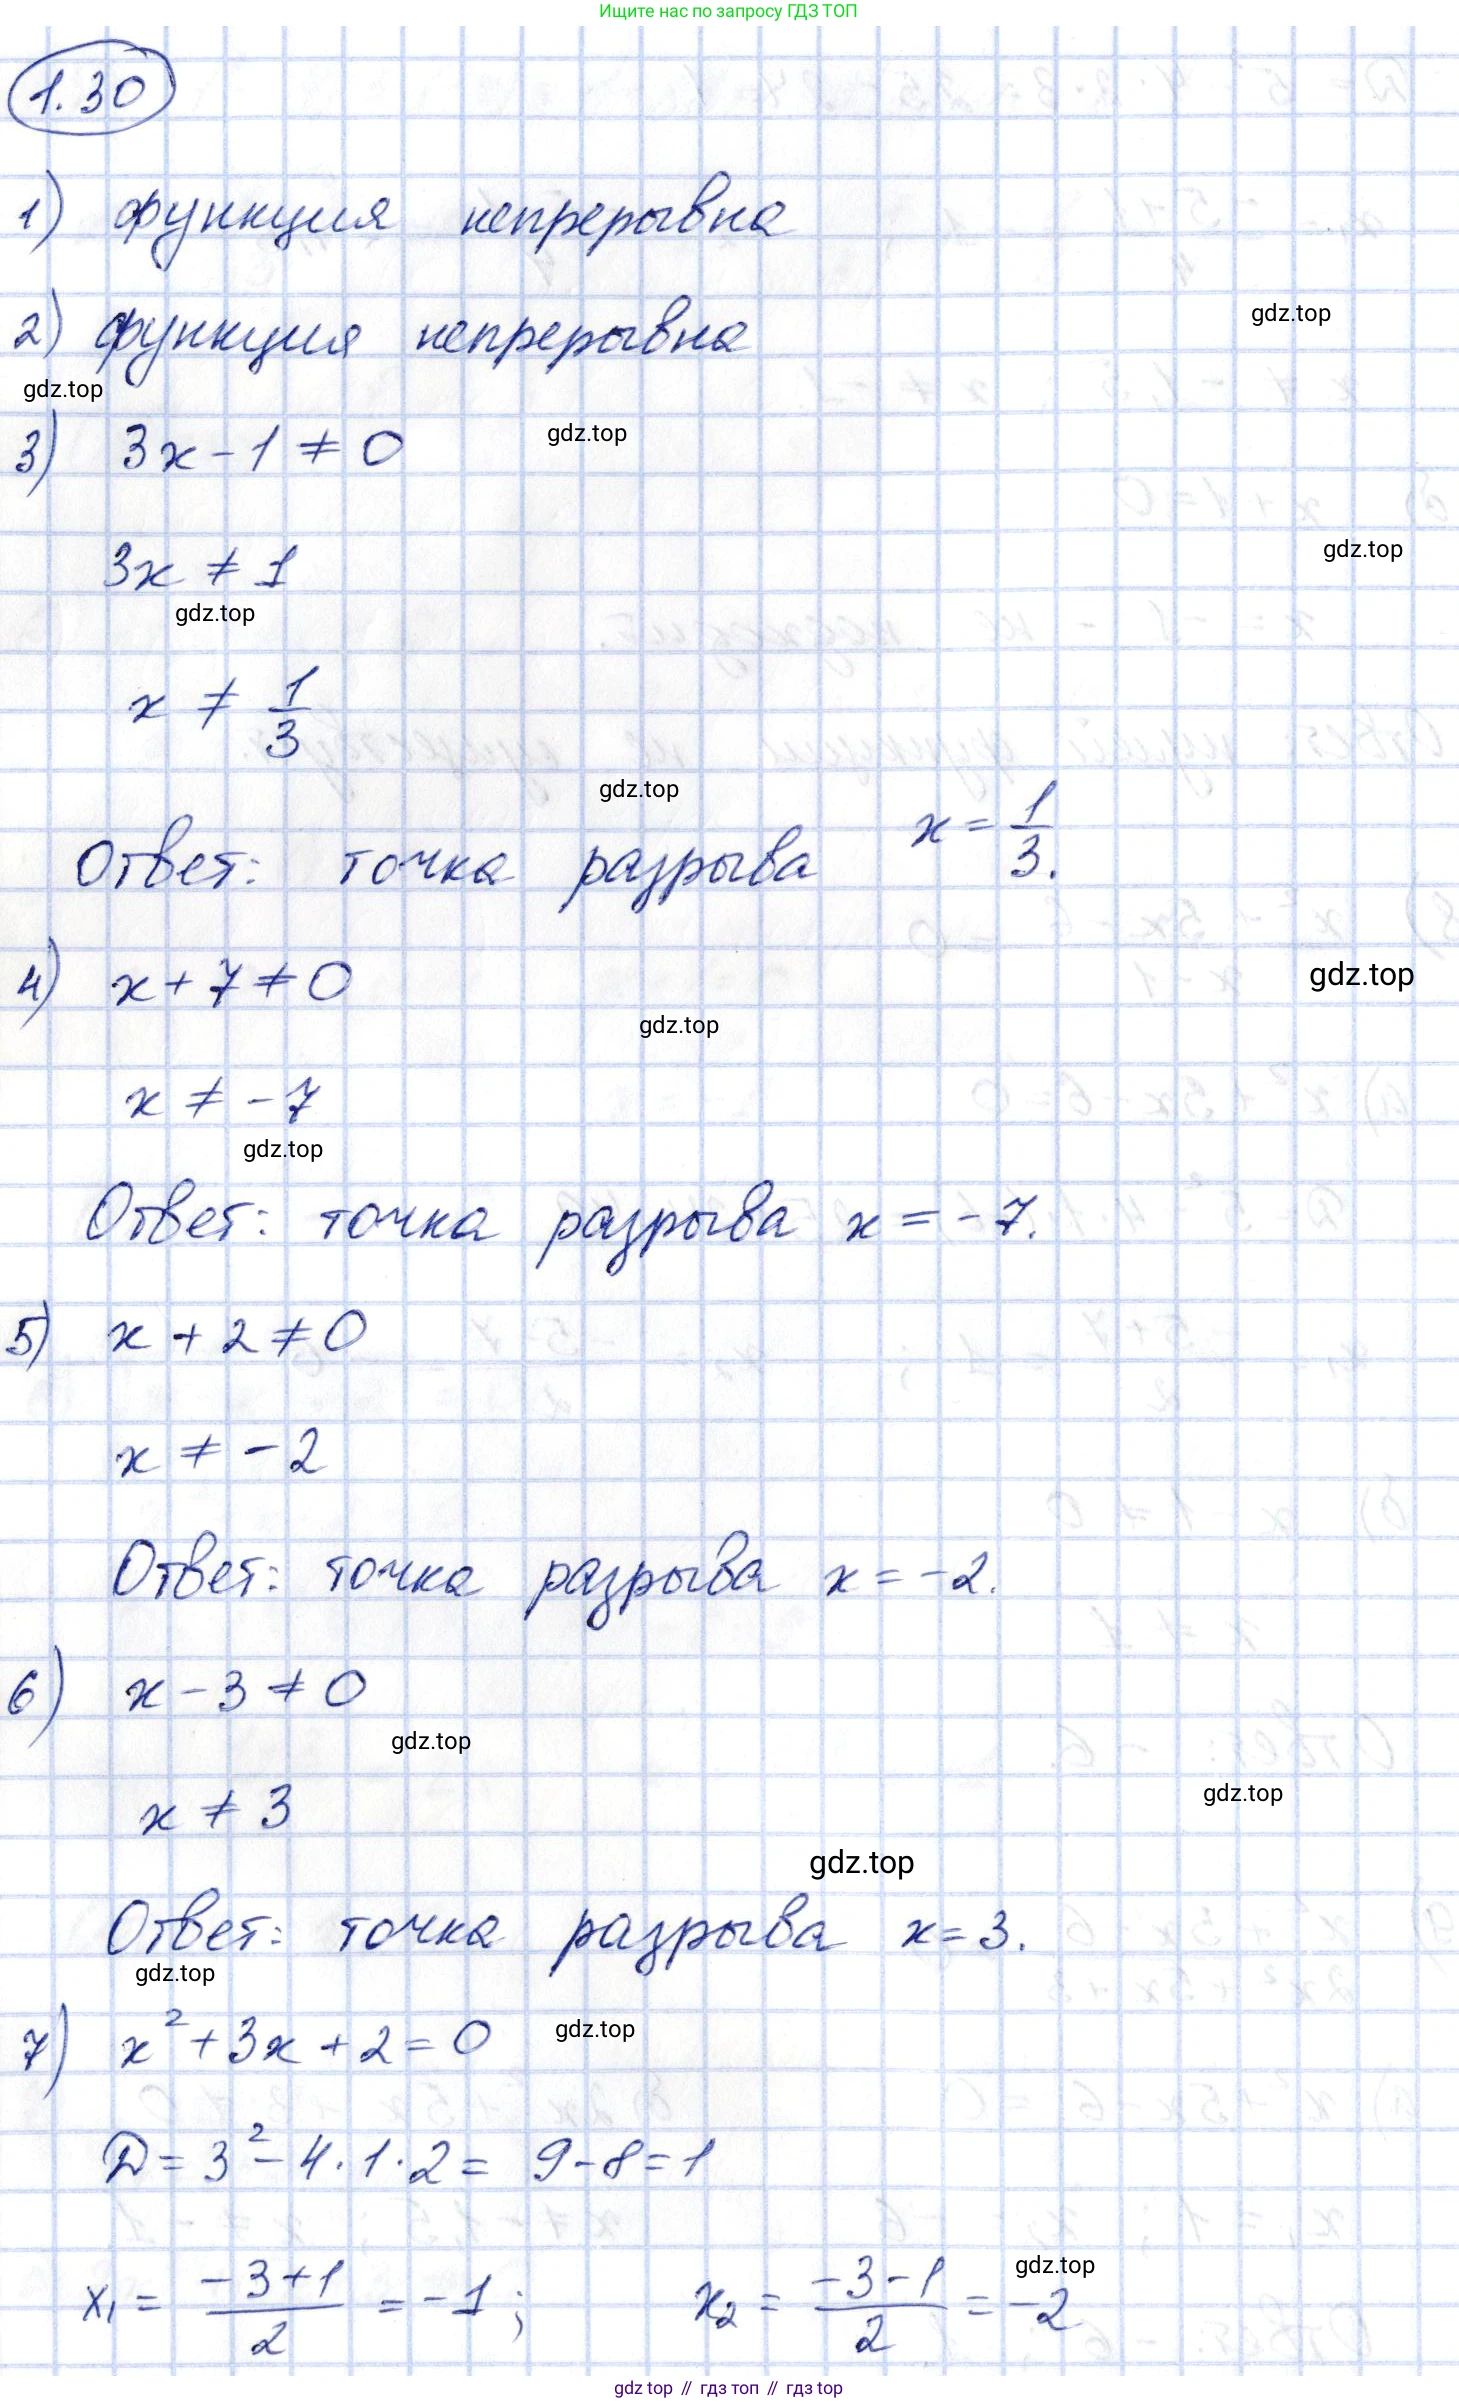 Ищите нас по запросу ГДЗ ТОП
1.30
1) функция непрерывна
gdz.top
2) функция непрерывна
gdz.top
3) 3x - 1 ≠ 0
gdz.top
gdz.top
3x ≠ 1
gdz.top
x ≠ 1/3
gdz.top
Ответ: точка разрыва x = 1/3.
4) x + 7 ≠ 0
gdz.top
gdz.top
x ≠ -7
gdz.top
Ответ: точка разрыва x = -7.
5) x + 2 ≠ 0
x ≠ -2
Ответ: точка разрыва x = -2.
6) x - 3 ≠ 0
gdz.top
x ≠ 3
gdz.top
gdz.top
Ответ: точка разрыва x = 3.
gdz.top
7) x² + 3x + 2 = 0
gdz.top
D = 3² - 4 · 1 · 2 = 9 - 8 = 1
gdz.top
x₁ = (-3+1)/2 = -1; x₂ = (-3-1)/2 = -2
gdz top // гдз топ // гдз top